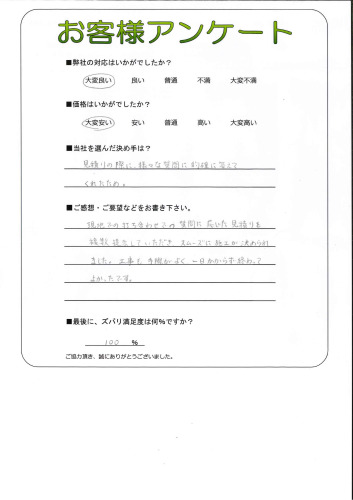 お客様アンケート
■弊社の対応はいかがでしたか？
大変良い 良い 普通 不満 大変不満
■価格はいかがでしたか？
大変安い 安い 普通 高い 大変高い
■当社を選んだ決め手は？
見積りの際に、様々な質問に的確に答えて
くれたため。
■ご感想・ご要望などをお書き下さい。
現地での打ち合わせでの質問に応じた見積りを
複数提示していただき、スムーズに施工が決められ
ました。工事も手際がよく、一日かからず終わって
よかったです。
■最後に、ズバリ満足度は何％ですか？
100 ％
ご協力頂き、誠にありがとうございました。